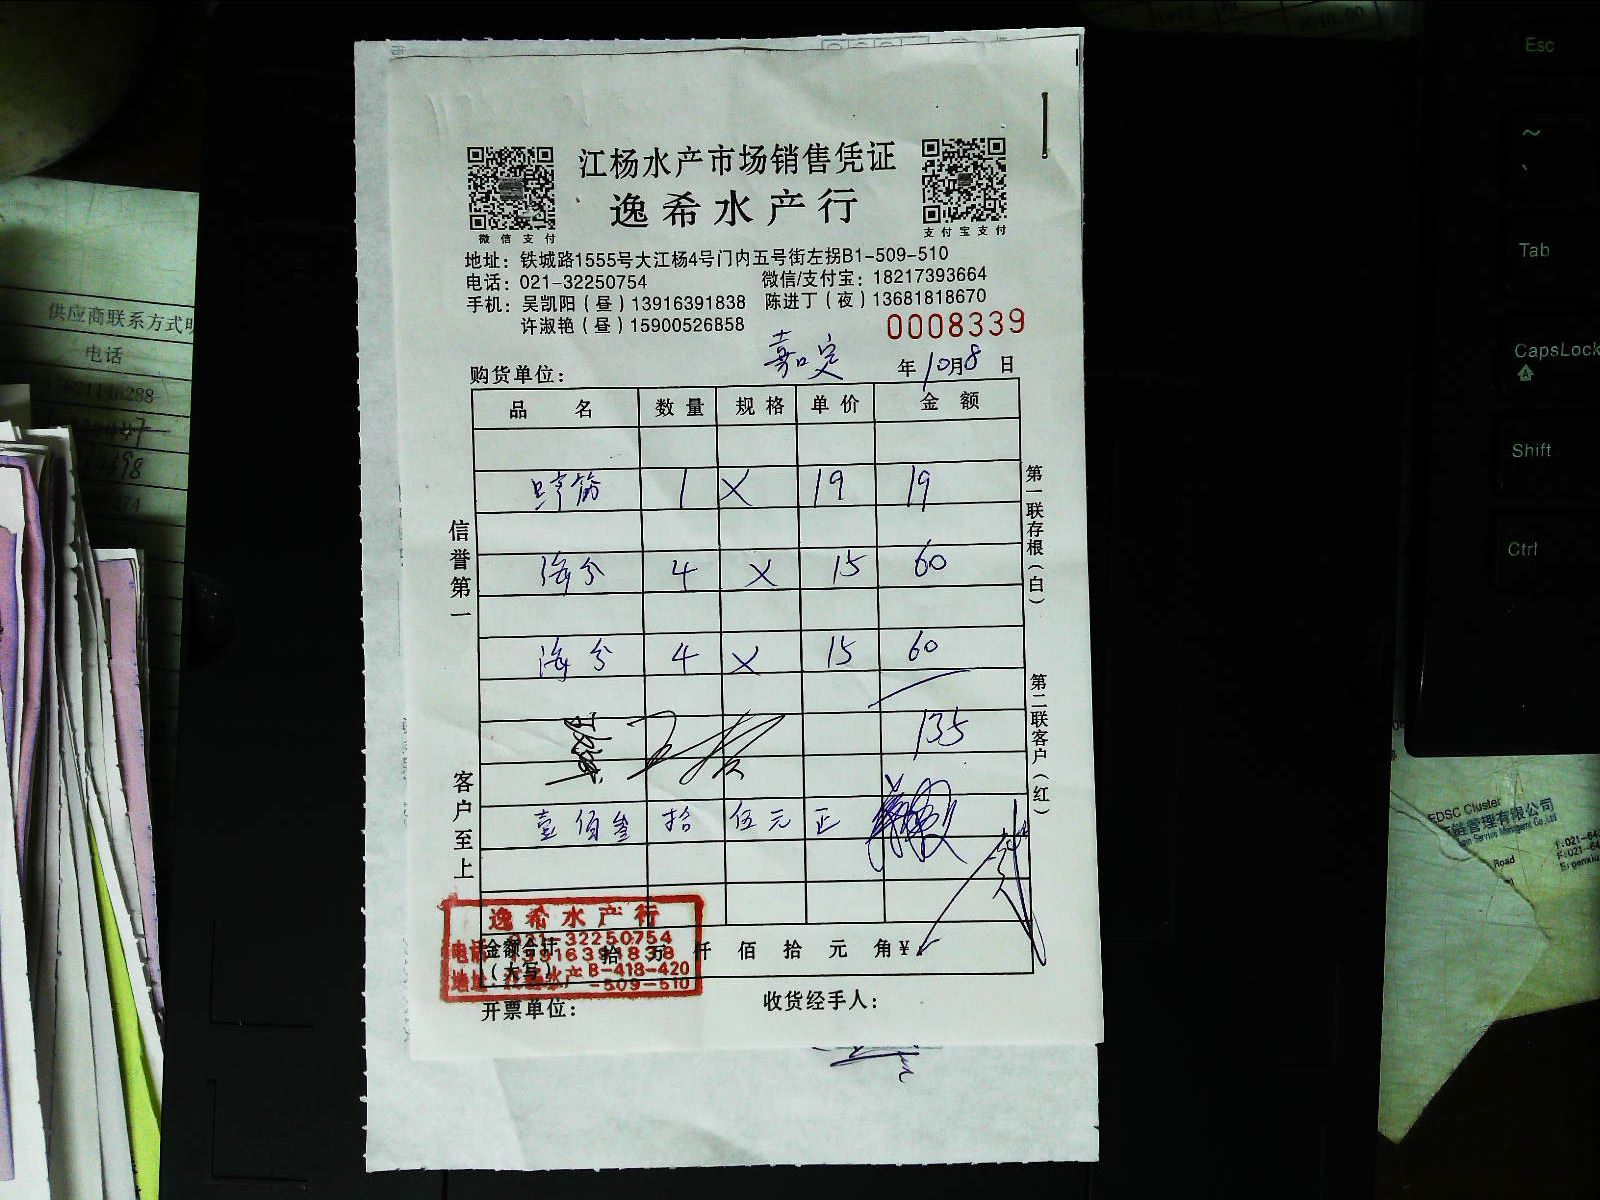 江杨水产市场销售凭证
逸希水产行
微信支付
支付宝支付
地址：铁城路1555号大江杨4号门内五号街左拐B1-509-510
电话：021-32250754 微信/支付宝：18217393664
手机：吴凯阳（昼）13916391838 陈进丁（夜）13681818670
许淑艳（昼）15900526858
0008339
购货单位： 嘉定 年10月8日
品名 数量 规格 单价 金额
1 X 19 19
4 X 15 60
4 X 15 60
135
壹佰叁拾伍元正
信誉第一
客户至上
第一联存根（白）
第二联客户（红）
逸希水产行
电话：021-32250754
13916391838
地址：江杨水产B-418-420
-509-510
金额合计（大写） 拾 万 仟 佰 拾 元 角 ¥
开票单位： 收货经手人：
供应商联系方式明
电话
Esc
~
Tab
CapsLock
Shift
Ctrl
EDSC Cluster
链管理有限公司
Road